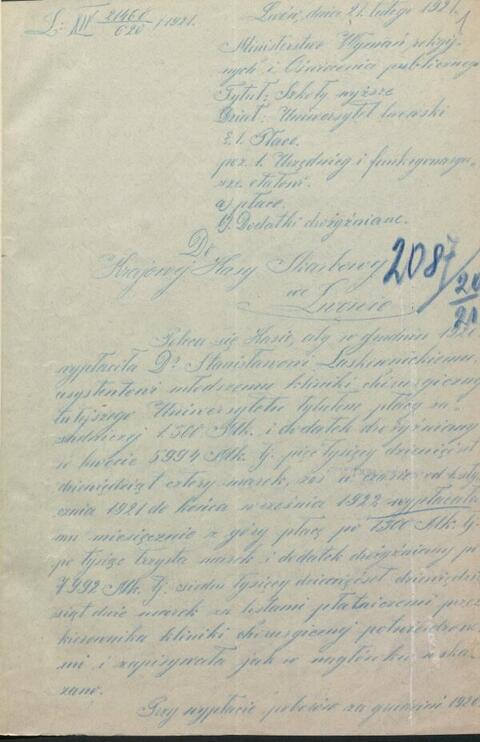 L: XIV 21460/620 /1921.
Lwów, dnia 21. lutego 1921.
1
Ministerstwo Wyznań religij-
nych i Oświecenia publicznego
Tytuł: Szkoły wyższe
Dział: Uniwersytet lwowski
§.1. Płace.
poz. 1. Urzędnicy i funkcjonarju-
sze etatowi.
a) płace.
b) Dodatki drożyźniane.
Do
Krajowej Kasy Skarbowej
we
Lwowie
2087/20/21
Poleca się Kasie, aby w grudniu 1920
wypłaciła Dr Stanisławowi Laskownickiemu,
asystentowi młodszemu kliniki chirurgicznej
tutejszego Uniwersytetu tytułem płacy za-
sadniczej 1.300 Mk. i dodatek drożyźniany
w kwocie 5994 Mk. tj. pięć tysięcy dziewięćset
dziewięćdziąt cztery marek, zaś w czasie od 1. sty-
cznia 1921 do końca września 1922 wypłacała
mu miesięcznie z góry płacę po 1300 Mk. tj.
po tysiąc trzysta marek i dodatek drożyźniany po
7992 Mk. tj. siedm tysięcy dziewięćset dziewięćdzie-
siąt dwie marek za listami płatniczemi przez
kierownika kliniki chirurgicznej potwierdzone-
mi i zapisywała jak w nagłówku wska-
zano.
Przy wypłacie poborów za grudzień 1920